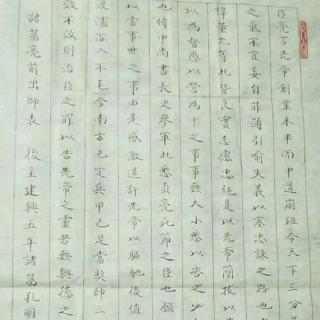 臣亮言先帝創業未半而中道崩殂今天下三分
之氣不宜妄自菲薄引喻失義以塞忠諫之路也
禕董允等此皆良實志慮忠純是以先帝簡拔以
以為督愚以為營中之事事無大小悉以咨之必
也侍中尚書長史參軍此悉貞亮死節之臣也願
以當世之事由是感激遂許先帝以驅馳後值
渡瀘深入不毛今南方已定兵甲已足當獎帥三
效不效則治臣之罪以告先帝之靈若無興德之
諸葛亮前出師表 後主建興五年諸葛孔明